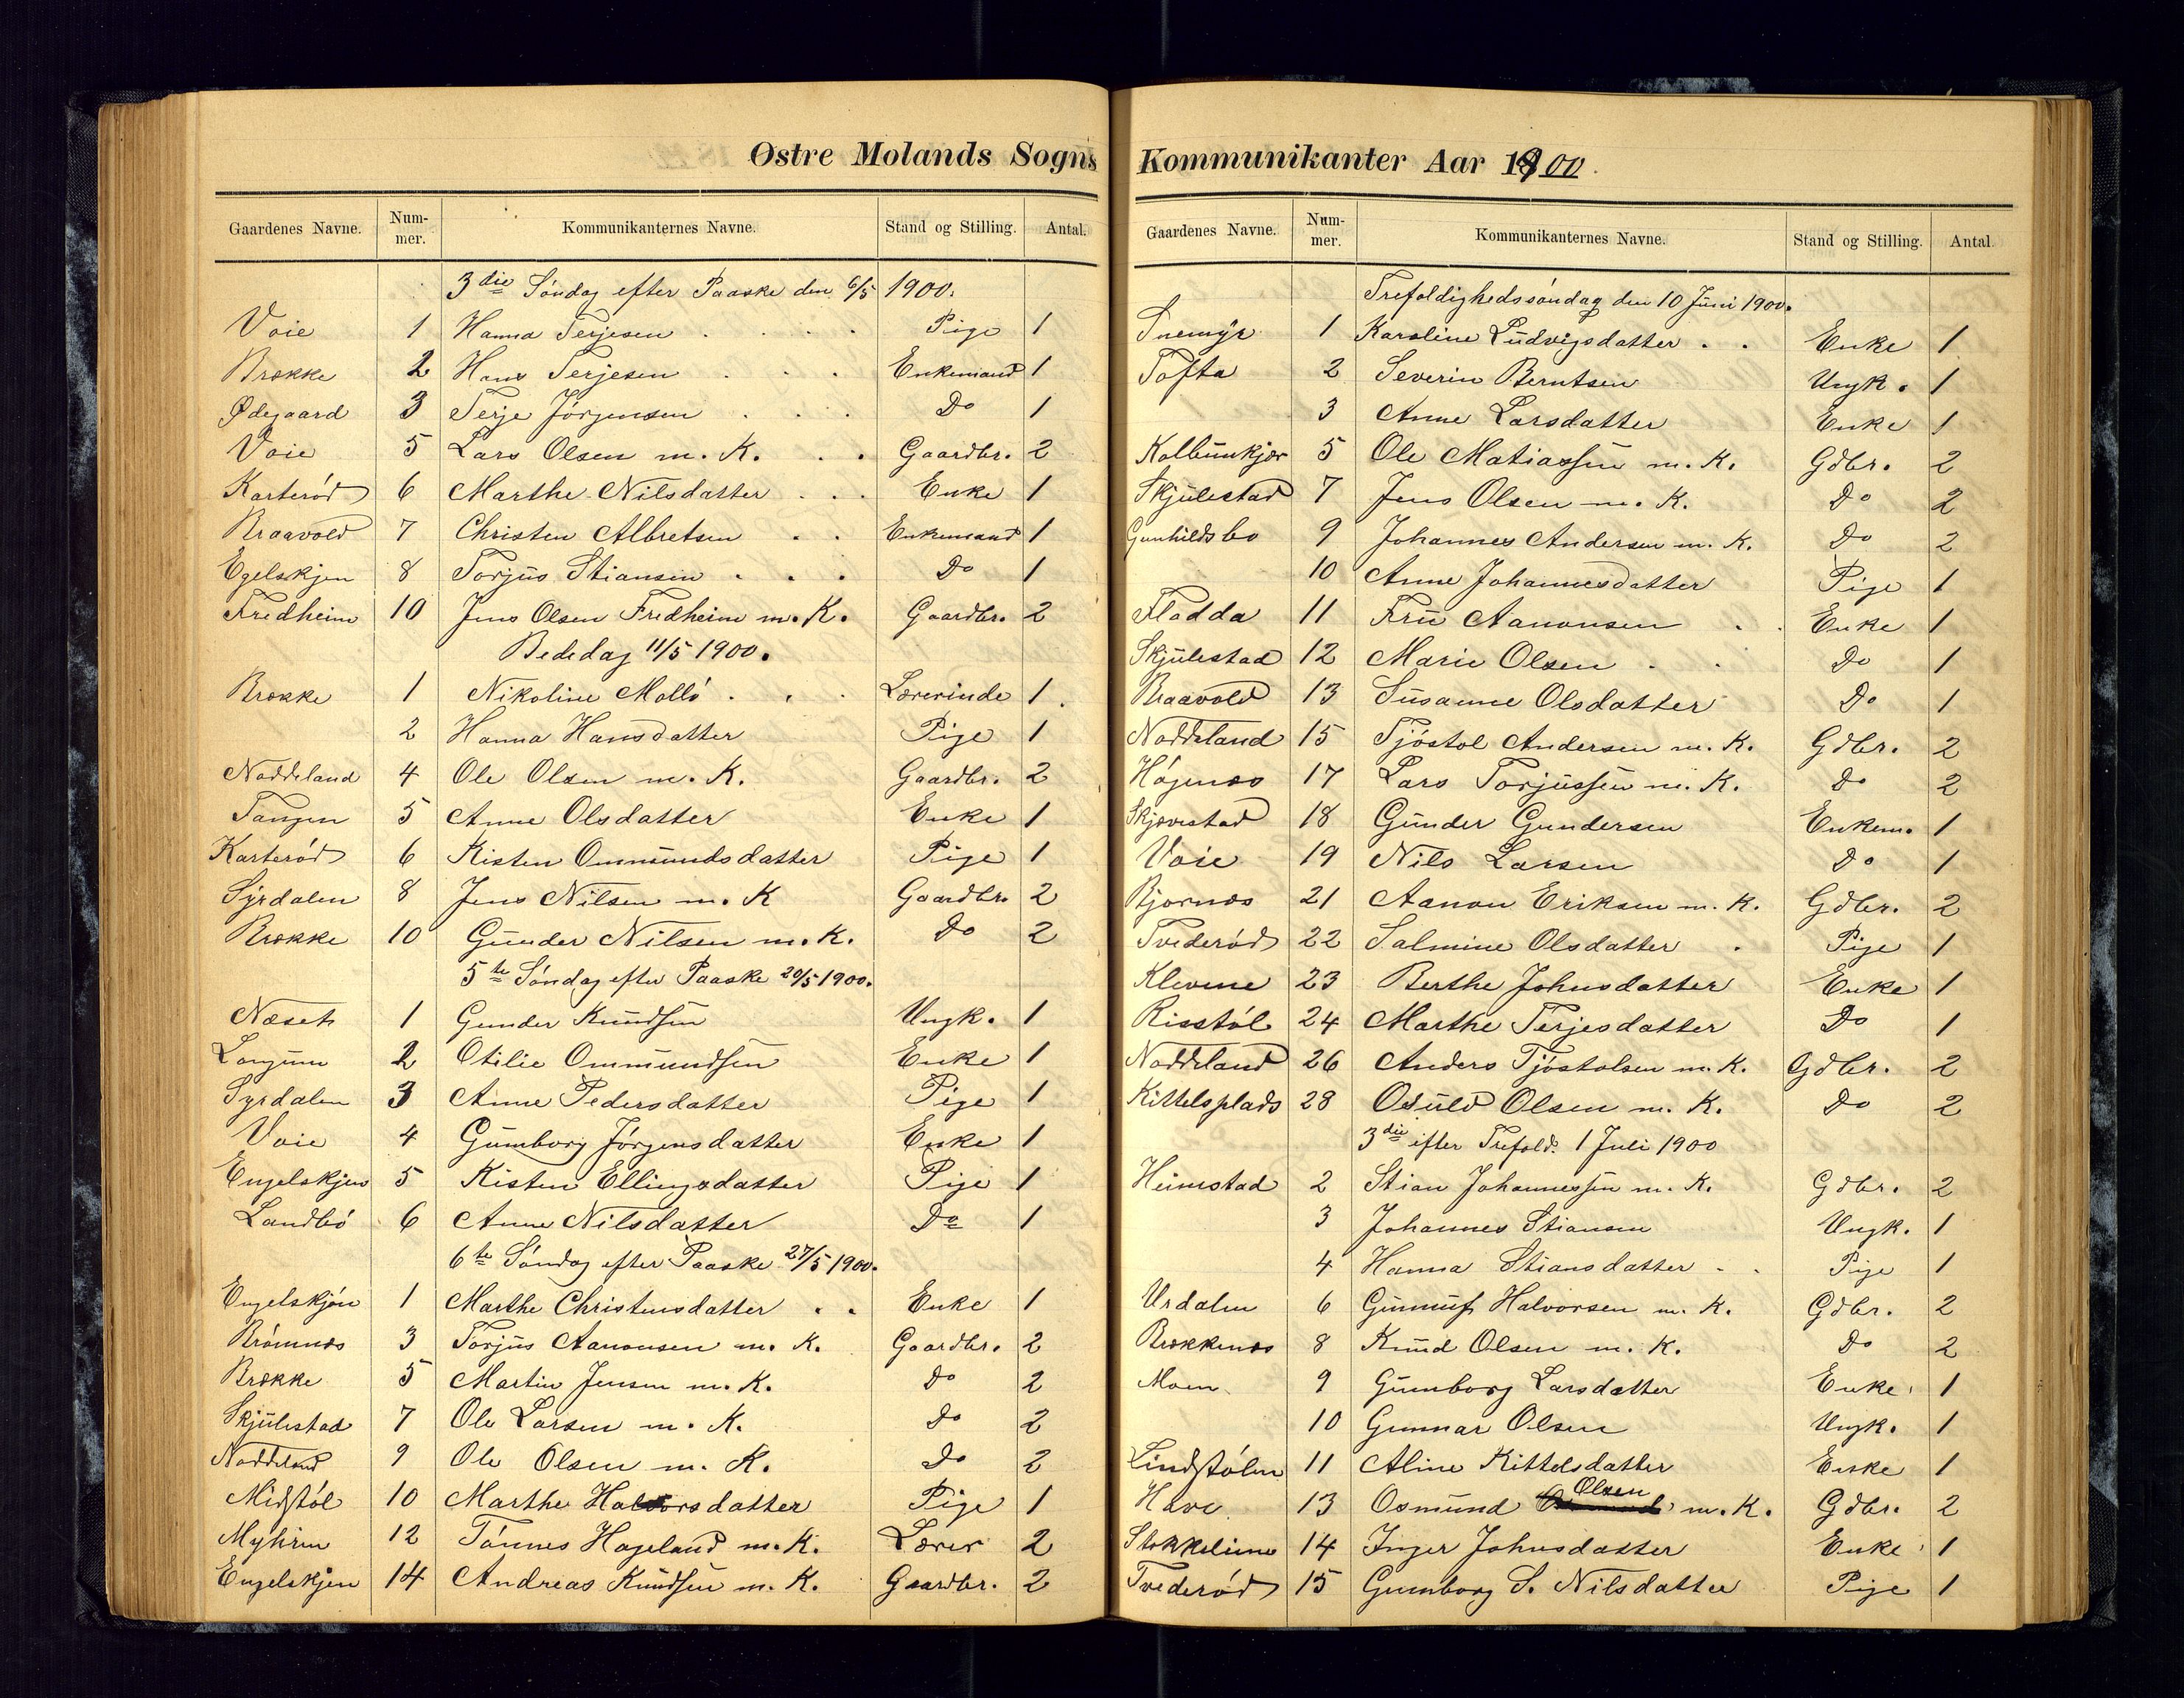 Østre Molands Sogns
Gaardenes Navne. Num-mer. Kommunikanternes Navne. Stand og Stilling. Antal.
3die Söndag efter Paaske den 6/5 1900.
Voie 1 Hanna Terjesen Pige 1
Brække 2 Hans Terjesen Enkemand 1
Ødegaard 3 Terje Jörgensen Do 1
Voie 5 Lars Olsen m. K. Gaardbr. 2
Karteröd 6 Marthe Nilsdatter Enke 1
Braavold 7 Christen Albretsen Enkemand 1
Egelskjen 8 Torjus Stiansen Do 1
Fredheim 10 Jens Olsen Fredheim m. K. Gaardbr. 2
Bededag 11/5 1900.
Brække 1 Nikoline Mollö Lærerinde 1
2 Hanna Hansdatter Pige 1
Næddeland 4 Ole Olsen m. K. Gaardbr. 2
Tangen 5 Anne Olsdatter Enke 1
Karteröd 6 Kisten Ommundsdatter Pige 1
Syrdalen 8 Jens Nilsen m. K Gaardbr. 2
Brække 10 Gunder Nilsen m. K. Do 2
5te Söndag efter Paaske 20/5 1900.
Næset 1 Gunder Knudsen Ungk. 1
Longum 2 Otilie Ommundsen Enke 1
Syrdalen 3 Anne Pedersdatter Pige 1
Voie 4 Gumborg Jörgensdatter Enke 1
Engelskjen 5 Kisten Ellingsdatter Pige 1
Landbö 6 Anne Nilsdatter Do 1
6te Söndag efter Paaske 27/5 1900.
Engelskjön 1 Marthe Christensdatter Enke 1
Brömnæs 3 Torjus Aanonsen m. K. Gaardbr. 2
Brække 5 Martin Jensen m. K. Do 2
Skjulestad 7 Ole Larsen m. K. Do 2
Næddeland 9 Ole Olsen m. K. Do 2
Midstöl 10 Marthe Halvorsdatter Pige 1
Myhren 12 Tönnes Hageland m. K. Lærer 2
Engelskjen 14 Andreas Knudsen m. K. Gaardbr. 2
Kommunikanter Aar 1900.
Gaardenes Navne. Num-mer. Kommunikanternes Navne. Stand og Stilling. Antal.
Trefoldighedssöndag den 10 Juni 1900.
Snemyr 1 Karoline Ludvigsdatter Enke 1
Tofta 2 Severin Berntsen Ungk. 1
3 Anne Larsdatter Enke 1
Kalbunkjær 5 Ole Matiassen m. K. Gdbr. 2
Skjulestad 7 Jens Olsen m. K. Do 2
Gunhildsbo 9 Johannes Andersen m. K. Do 2
10 Anne Johannesdatter Pige 1
Fladda 11 Fru Aanonsen Enke 1
Skjulestad 12 Marie Olsen Do 1
Braavold 13 Susanne Olsdatter Do 1
Næddeland 15 Tjöstol Andersen m. K. Gdbr. 2
Högenæs 17 Lars Torjussen m. K. Do 2
Skjævestad 18 Gunder Gundersen Enkem. 1
Voie 19 Nils Larsen Do 1
Bjornæs 21 Aanon Eriksen m. K. Gdbr. 2
Tvederöd 22 Salmine Olsdatter Pige 1
Klevene 23 Berthe Johnsdatter Enke 1
Risstöl 24 Marthe Terjesdatter Do 1
Næddeland 26 Anders Tjöstolsen m. K. Gdbr. 2
Kittelsplads 28 Osuld Olsen m. K. Do 2
3die efter Trefold. 1 Juli 1900
Heimstad 2 Stian Johannessen m. K. Gdbr. 2
3 Johannes Stiansen Ungk. 1
4 Hanna Stiansdatter Pige 1
Urdalen 6 Gunnuf Halvorsen m. K. Gdbr. 2
Brækkenæs 8 Knud Olsen m. K. Do 2
Moen 9 Gumborg Larsdatter Enke 1
10 Gunnar Olsen Ungk. 1
Lindstölen 11 Aline Kittelsdatter Enke 1
Have 13 Osmund Olsen m. K. Gdbr. 2
Stokkelinne 14 Inger Johnsdatter Enke 1
Tvederöd 15 Gumborg S. Nilsdatter Pige 1